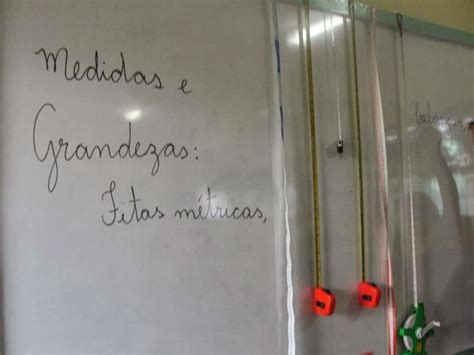 Medidas e
Grandezas:
Fitas métricas,